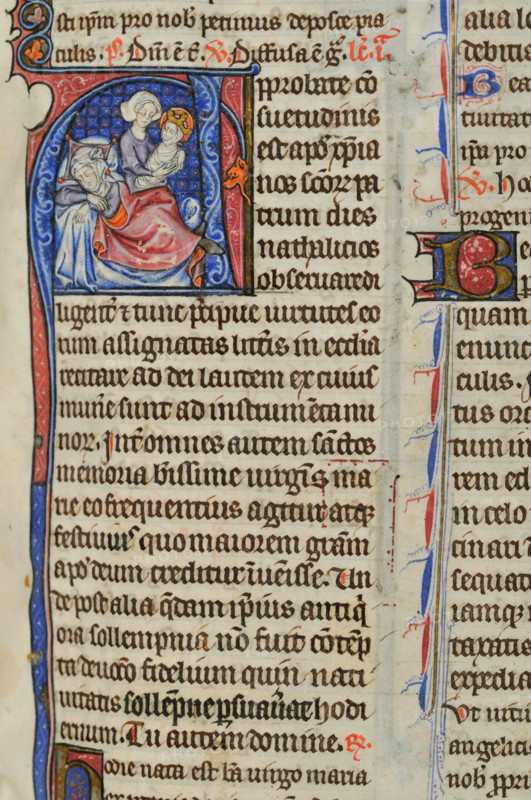 sti ip̄m pro nob̄ petimus deposce pia
culis. p̄. Dn̄i ē t̄. V̄. Diffusa ē g̃. lc̄. iᷓ.
Approbate cō
suetudinis
est apō xp̄ia
nos scōꝝ pa
trum dies
nathalicios
obseruare di
ligent̄ ⁊ tunc p̄cipue uirtutes eo
rum assignatas litt̄is in ecc̄ia
recitare ad dei laudem ex cuius
mun̄e sunt ad instrum̄ta nr̄i
noꝝ. Int̄ omnes autem sanctos
memoria b̄issime uirgīs ma
rie eo frequentius agitur atqꝫ
festiuius quo maiorem grām
apō deum creditur īuēisse. Un
de post alia q̄dam ip̄ius antiq̄
ora sollempnia nō fuit cōtēp
ta deuōcō fidelium quin nati
uitatis sollēpne psuaīae hodi
ernum. Tu autem domine. ꝶ.
Hodie nata est bā uirgo maria
alia lo
debitis
Bea
tiuitat
ip̄a pro
V̄. ho
progeni
Be
quam
enunc
culis.
tus or
tum in
rem ed
in celo
tinari
sequat
iamqꝫ
taxatis
expedia
Vt uirtu
angelic
nob̄ p̄pri